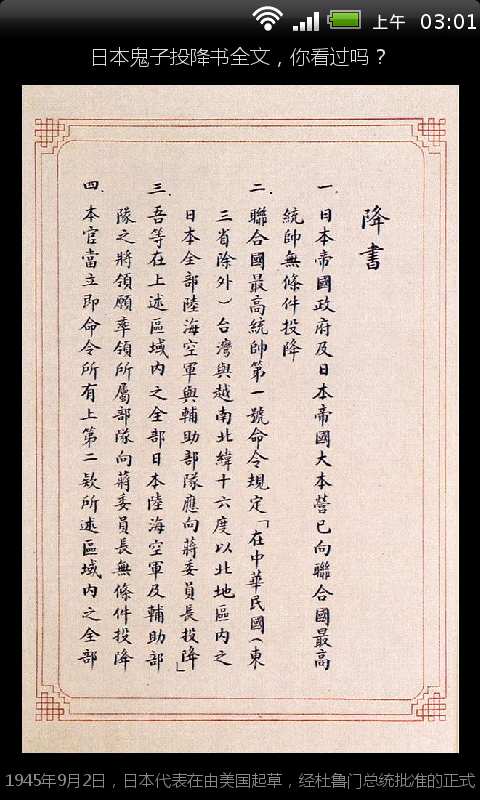 上午 03:01
日本鬼子投降书全文，你看过吗？
降書
一．日本帝國政府及日本帝國大本營已向聯合國最高
統帥無條件投降
二．聯合國最高統帥第一號命令規定「在中華民國（東
三省除外）台灣與越南北緯十六度以北地區內之
日本全部陸海空軍與輔助部隊應向蔣委員長投降」
三．吾等在上述區域內之全部日本陸海空軍及輔助部
隊之將領願率領所屬部隊向蔣委員長無條件投降
四．本官當立即命令所有上第二欵所述區域內之全部
1945年9月2日，日本代表在由美国起草，经杜鲁门总统批准的正式